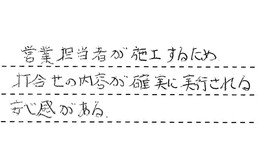 営業担当者が施工するため
打合せの内容が確実に実行される
安心感がある.